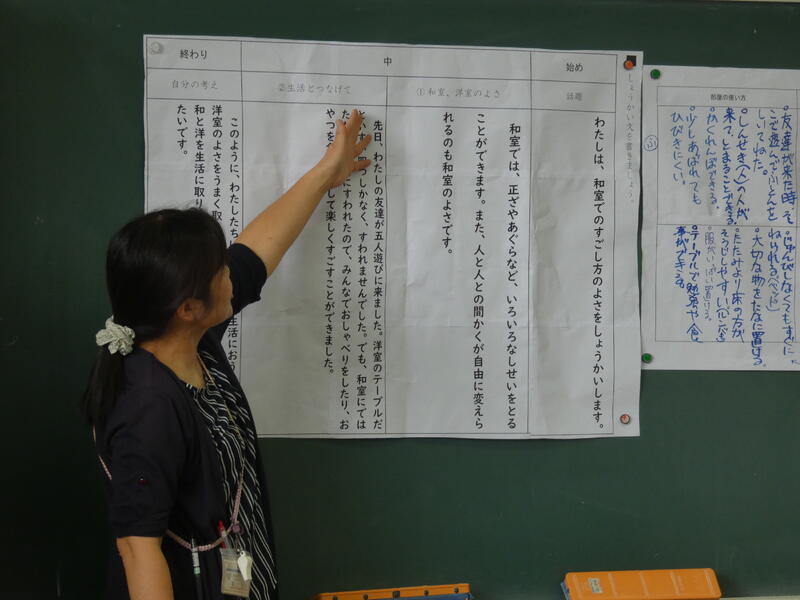 部屋の使い方
・友達が来た時、そ
こで遊んで、ふとんを
しいてねた。
・しんせき(人)の人が
来て、とまることができる。
・かくれんぼできる。
・少しあばれても
ひびきにくい。
・じゅんびしなくてもすぐに
ねいれる。(ベッド)
・大切な物をたなに置ける
・たたみより床の方が、
そうじしやすい。
・服がいっぱい置ける。
・テーブルで勉強や食
事ができる。
しょうかい文を書きましょう。
始め
話題
わたしは、和室でのすごし方のよさをしょうかいします。
中
① 和室、洋室のよさ
和室では、正ざやあぐらなど、いろいろなしせいをとる
ことができます。また、人と人との間かくが自由に変えら
れるのも和室のよさです。
②生活とつなげて
先日、わたしの友達が五人遊びに来ました。洋室のテーブルだ
つしかなく、すわれませんでした。でも、和室にでは
にすわれたので、みんなでおしゃべりをしたり、お
やつを して楽しくすごすことができました。
終わり
自分の考え
このように、わたしたち 生活におう
洋室のよさをうまく取
和と洋を生活に取り
たいです。